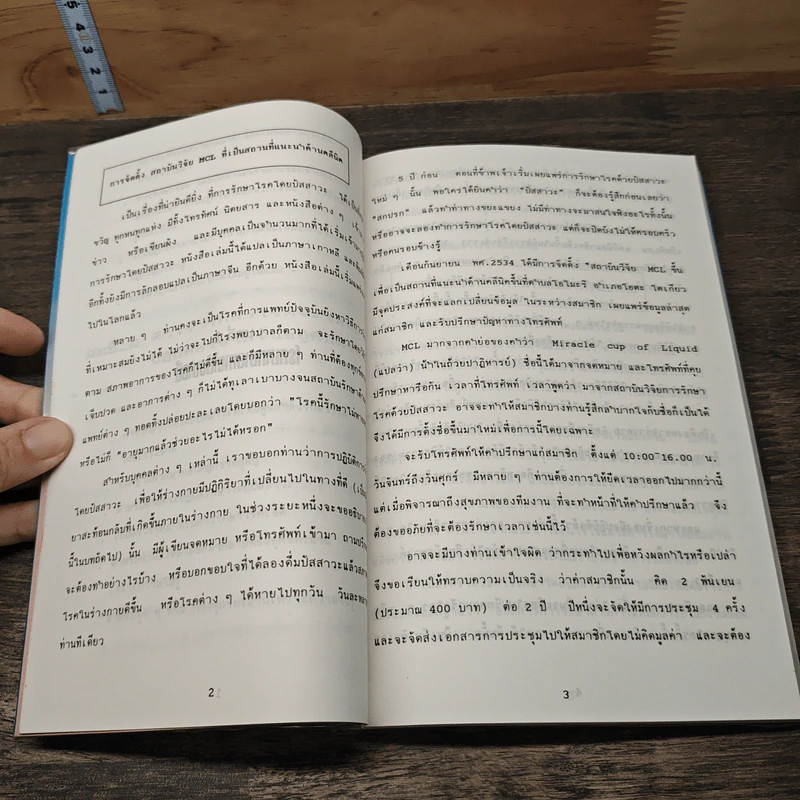 5 4 3 2 1
การจัดตั้ง สถาบันวิจัย MCL ที่เป็นสถานที่แนะนำด้านคลีนิค
เป็นเรื่องที่น่ายินดียิ่ง ที่การรักษาโรคโดยปัสสาวะ ได้เป็นที่
ขวัญ ทุกหนทุกแห่ง มีทั้งโทรทัศน์ นิตยสาร และหนังสือต่าง ๆ
ข่าว หรือเขียนผัง และมีบุคคลเป็นจำนวนมากที่ได้เริ่มเข้า
การรักษาโดยปัสสาวะ หนังสือเล่มนี้ได้แปลเป็นภาษาเกาหลี และ
อีกทั้งยังมีการลักลอบแปลเป็นภาษาจีน อีกด้วย หนังสือเล่มนี้เริ่ม
ไปในโลกแล้ว
หลาย ๆ ท่านคงจะเป็นโรคที่การแพทย์ปัจจุบันยังหาวิธีการ
ที่เหมาะสมยังไม่ได้ ไม่ว่าจะไปที่โรงพยาบาลก็ตาม จะรักษาโดย
ตาม สภาพอาการของโรคก็ไม่ดีขึ้น และก็มีหลาย ๆ ท่านที่ต้องทุกข์
เจ็บปวด และอาการต่าง ๆ ก็ไม่ได้ทุเลาเบาบางจนสถาบันรักษา
แพทย์ต่าง ๆ ทอดทิ้งปล่อยปะละเลยโดยบอกว่า "โรคนี้รักษาไม่
หรือไม่ก็ "อายุมากแล้วช่วยอะไรไม่ได้หรอก"
สำหรับบุคคลต่าง ๆ เหล่านี้ เราขอบอกท่านว่าการปฏิบัติการ
โดยปัสสาวะ เพื่อให้ร่างกายมีปฏิกิริยาที่เปลี่ยนไปในทางที่ดี
ยาสะท้อนกลับที่เกิดขึ้นภายในร่างกาย ในช่วงระยะหนึ่งจะขออธิบาย
นี้ในบทถัดไป) นั้น มีผู้เขียนจดหมาย หรือโทรศัพท์เข้ามา ถาม
จะต้องทำอย่างไรบ้าง หรือบอกขอบใจที่ได้ลองดื่มปัสสาวะแล้ว
โรคในร่างกายดีขึ้น หรือโรคต่าง ๆ ได้หายไปทุกวัน วันละ
ท่านทีเดียว
2
5 ปี ก่อน ตอนที่ข้าพเจ้าเริ่มเผยแพร่การรักษาโรคด้วยปัสสาวะ
ใหม่ ๆ นั้น พอใครได้ยินคำว่า "ปัสสาวะ" ก็จะต้องรู้สึกก่อนเลยว่า
"สกปรก" แล้วทำท่าทางขยะแขยง ไม่มีท่าทางจะมาสนใจฟังอะไรทั้งนั้น
หรืออาจจะลองทำการรักษาโรคโดยปัสสาวะ แต่ก็จะปิดบังไม่ให้ครอบครัว
หรือคนรอบข้างรู้
เดือนกันยายน พศ.2534 ได้มีการจัดตั้ง "สถาบันวิจัย MCL ขึ้น
เพื่อเป็นสถานที่แนะนำด้านคลีนิคขึ้นที่ตำบลโอโมะริ อำเภอโอตะ โตเกียว
มีจุดประสงค์ที่จะแลกเปลี่ยนข้อมูล ในระหว่างสมาชิก เผยแพร่ข้อมูลล่าสุด
แก่สมาชิก และรับปรึกษาปัญหาทางโทรศัพท์
MCL มาจากคำย่อของคำว่า Miracle cup of Liquid
(แปลว่า น้ำในถ้วยปาฏิหารย์) ชื่อนี้ได้มาจากจดหมาย และโทรศัพท์ที่คุย
ปรึกษาหารือกัน เวลาที่โทรศัพท์ เวลาพูดว่า มาจากสถาบันวิจัยการรักษา
โรคด้วยปัสสาวะ อาจจะทำให้สมาชิกบางท่านรู้สึกลำบากใจกับชื่อก็เป็นได้
จึงได้มีการตั้งชื่อขึ้นมาใหม่เพื่อการนี้โดยเฉพาะ
จะรับโทรศัพท์ให้คำปรึกษาแก่สมาชิก ตั้งแต่ 10:00-16.00 น.
วันจันทร์ถึงวันศุกร์ มีหลาย ๆ ท่านต้องการให้ยืดเวลาออกไปมากกว่านี้
แต่เมื่อพิจารณาถึงสุขภาพของทีมงาน ที่จะทำหน้าที่ให้คำปรึกษาแล้ว จึง
ต้องขออภัยที่จะต้องรักษาเวลาเช่นนี้ไว้
อาจจะมีบางท่านเข้าใจผิด ว่ากระทำไปเพื่อหวังผลกำไรหรือเปล่า
จึงขอเรียนให้ทราบความเป็นจริง ว่าค่าสมาชิกนั้น คิด 2 พันเยน
(ประมาณ 400 บาท) ต่อ 2 ปี ปีหนึ่งจะจัดให้มีการประชุม 4 ครั้ง
และจะจัดส่งเอกสารการประชุมไปให้สมาชิกโดยไม่คิดมูลค่า และจะต้อง
3